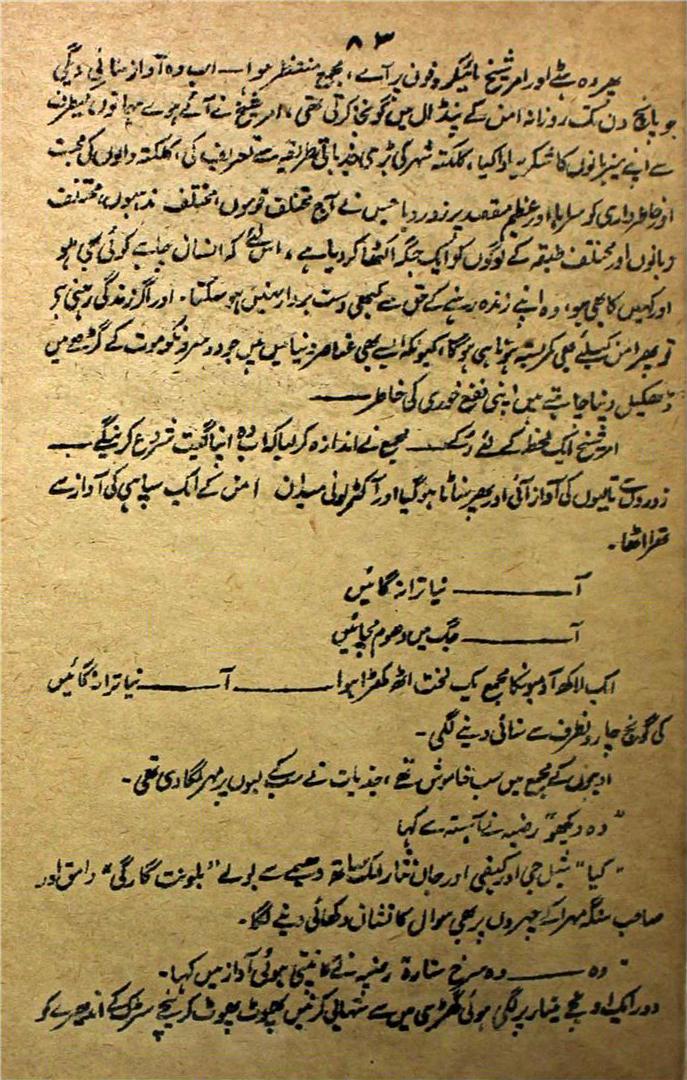 ۸۳
پھر وہ ہٹے اور امر شیخ مائیکروفون پر آئے، مجمع منتظر ہوا — اب وہ آواز سنائی دیگی
جو پانچ دن تک روزانہ امن کے پنڈال میں گونجا کرتی تھی، امر شیخ نے آئے ہوئے مہمانوں کیطرف
سے اپنے میزبانوں کا شکریہ ادا کیا، کلکتہ شہر کی بڑے جذباتی طریقہ سے تعریف کی، کلکتہ والوں کی محبت
اور خاطر داری کو سراہا اور عظیم مقصد پر زور دیا جس نے آج مختلف قوموں، مختلف مذہبوں، مختلف
زبانوں اور مختلف طبقہ کے لوگوں کو ایک جگہ اکٹھا کر دیا ہے، اس لئے کہ انسان چاہے کوئی بھی ہو
اور کہیں کا بھی ہو، وہ اپنے زندہ رہنے کے حق سے کبھی دست بردار نہیں ہو سکتا۔ اور اگر زندگی رہنی ہے
تو پھر امن کیلئے بھی کربستہ ہونا ہی ہوگا، کیونکہ ایسے بھی عناصر دنیا میں ہیں جو دوسروں کو موت کے گڑھے میں
ڈھکیل دینا چاہتے ہیں اپنی نفع خوری کی خاطر —
امر شیخ ایک لحظہ کے لئے رکے — مجمع نے اندازہ کر لیا کہ اب وہ اپنا گیت شروع کرینگے —
زوردار تالیوں کی آواز آئی اور پھر سناٹا ہو گیا اور آکٹرلونی میدان امن کے ایک سپاہی کی آواز سے
تھرا اٹھا۔
آ ——— نیا ترانہ گائیں
آ ——— جگ میں دھوم مچائیں
ایک لاکھ آدمیونکا مجمع یک لخت اٹھ کھڑا ہوا ——— آ ——— نیا ترانہ گائیں
کی گونج چاروں طرف سے سنائی دینے لگی۔
ادیبوں کے مجمع میں سب خاموش تھے، جذبات نے سب کے لبوں پر مہر لگا دی تھی۔
"وہ دیکھو" رضیہ نے آہستہ سے کہا
"کیا" شیل جی اور کیفی اور جاں نثار ایک ساتھ دھیمے سے بولے "بلونت گارگی" وامق اور
صاحب سنگھ مہرا کے چہروں پر بھی سوال کا نشان دکھائی دینے لگا۔
"وہ —— وہ سرخ ستارہ" رضیہ نے کانپتی ہوئی آواز میں کہا۔
دور ایک اونچے مینار پر لگی ہوئی گھڑی میں سے شہابی کرنیں پھوٹ پھوٹ کر نیچے سڑک کے اندھیرے کو